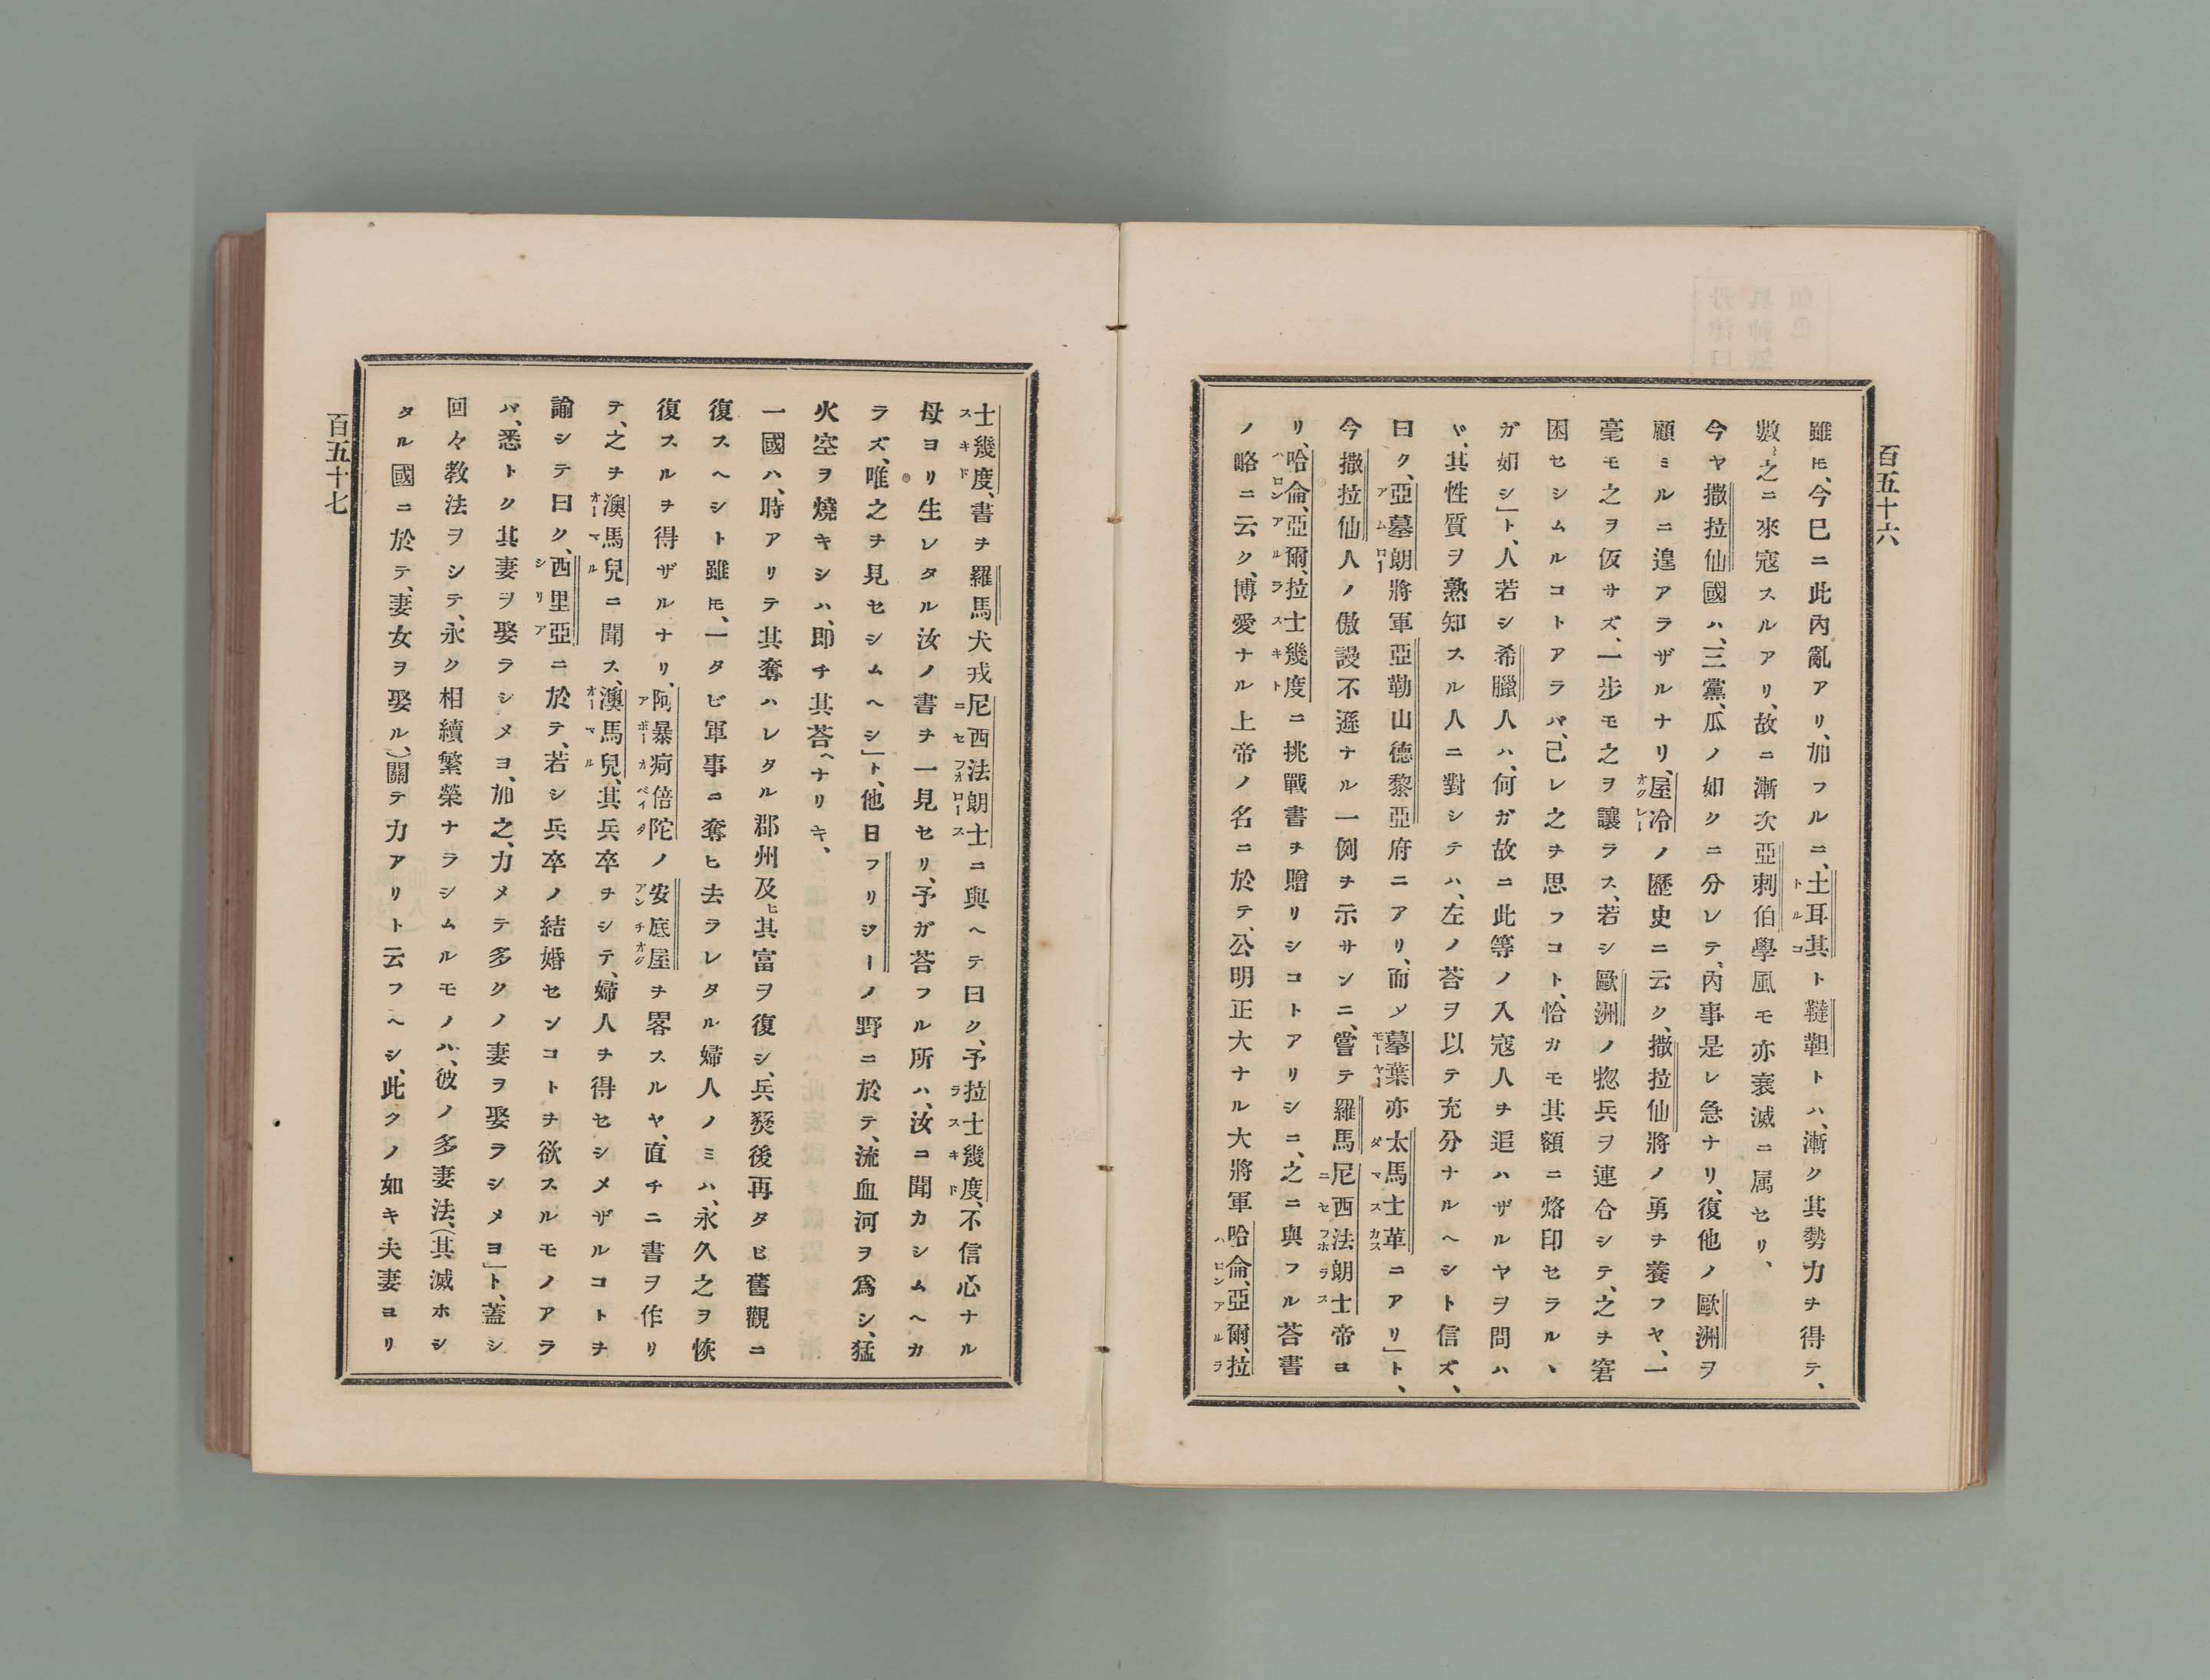 百五十六
雖𪜈、今巳ニ此內亂アリ、加フルニ、土耳其ト韃靼トハ、漸ク其勢力ヲ得テ、
數〻之ニ來寇スルアリ、故ニ漸次亞刺伯學風モ亦衰滅ニ属セリ、
今ヤ撒拉仙國ハ、三黨、瓜ノ如クニ分レテ、內事是レ急ナリ、復他ノ歐洲ヲ
顧ミルニ遑アラザルナリ、屋冷ノ歷史ニ云ク、撒拉仙將ノ勇ヲ養フヤ、一
毫モ之ヲ仮サズ、一步モ之ヲ讓ラス、若シ歐洲ノ惣兵ヲ連合シテ、之ヲ窘
困セシムルコトアラバ、己レ之ヲ思フコト、恰カモ其額ニ烙印セラルヽ
ガ如シ」ト、人若シ希臘人ハ、何ガ故ニ此等ノ入寇人ヲ追ハザルヤヲ問ハ
ヾ、其性質ヲ熟知スル人ニ對シテハ、左ノ荅ヲ以テ充分ナルヘシト信ズ、
曰ク、亞墓朗將軍亞勒山德黎亞府ニアリ、而メ墓葉亦太馬士革ニアリ」ト、
今撒拉仙人ノ傲謾不遜ナル一例ヲ示サンニ、嘗テ羅馬尼西法朗士帝ヨ
リ、哈侖、亞爾、拉士幾度ニ挑戰書ヲ贈リシコトアリシニ、之ニ與フル荅書
ノ略ニ云ク、博愛ナル上帝ノ名ニ於テ、公明正大ナル大將軍哈侖、亞爾、拉
士幾度、書ヲ羅馬犬戎尼西法朗士ニ與ヘテ曰ク、予拉士幾度、不信心ナル
母ヨリ生レタル汝ノ書ヲ一見セリ、予ガ荅フル所ハ、汝コ聞カシムヘカ
ラズ、唯之ヲ見セシムヘシ」ト、他日フリジーノ野ニ於テ、流血河ヲ爲シ、猛
火空ヲ燒キシハ、即チ其荅ヘナリキ、
一國ハ、時アリテ其奪ハレタル郡州及ヒ其富ヲ復シ、兵燹後再タビ舊觀ニ
復スヘシト雖𪜈、一タビ軍事ニ奪ヒ去ラレタル婦人ノミハ、永久之ヲ恢
復スルヲ得ザルナリ、阿暴痾倍陀ノ安底屋ヲ畧スルヤ、直チニ書ヲ作リ
テ、之ヲ澳馬兒ニ聞ス、澳馬兒、其兵卒ヲシテ、婦人ヲ得セシメザルコトヲ
諭シテ曰ク、西里亞ニ於テ、若シ兵卒ノ結婚センコトヲ欲スルモノアラ
バ、悉トク其妻ヲ娶ラシメヨ、加之、力メテ多クノ妻ヲ娶ラシメヨ」ト、蓋シ
回々教法ヲシテ、永ク相續繁榮ナラシムルモノハ、彼ノ多妻法、(其滅ホシ
タル國ニ於テ、妻女ヲ娶ル、)關テ力アリト云フヘシ、此クノ如キ夫妻ヨリ
百五十七